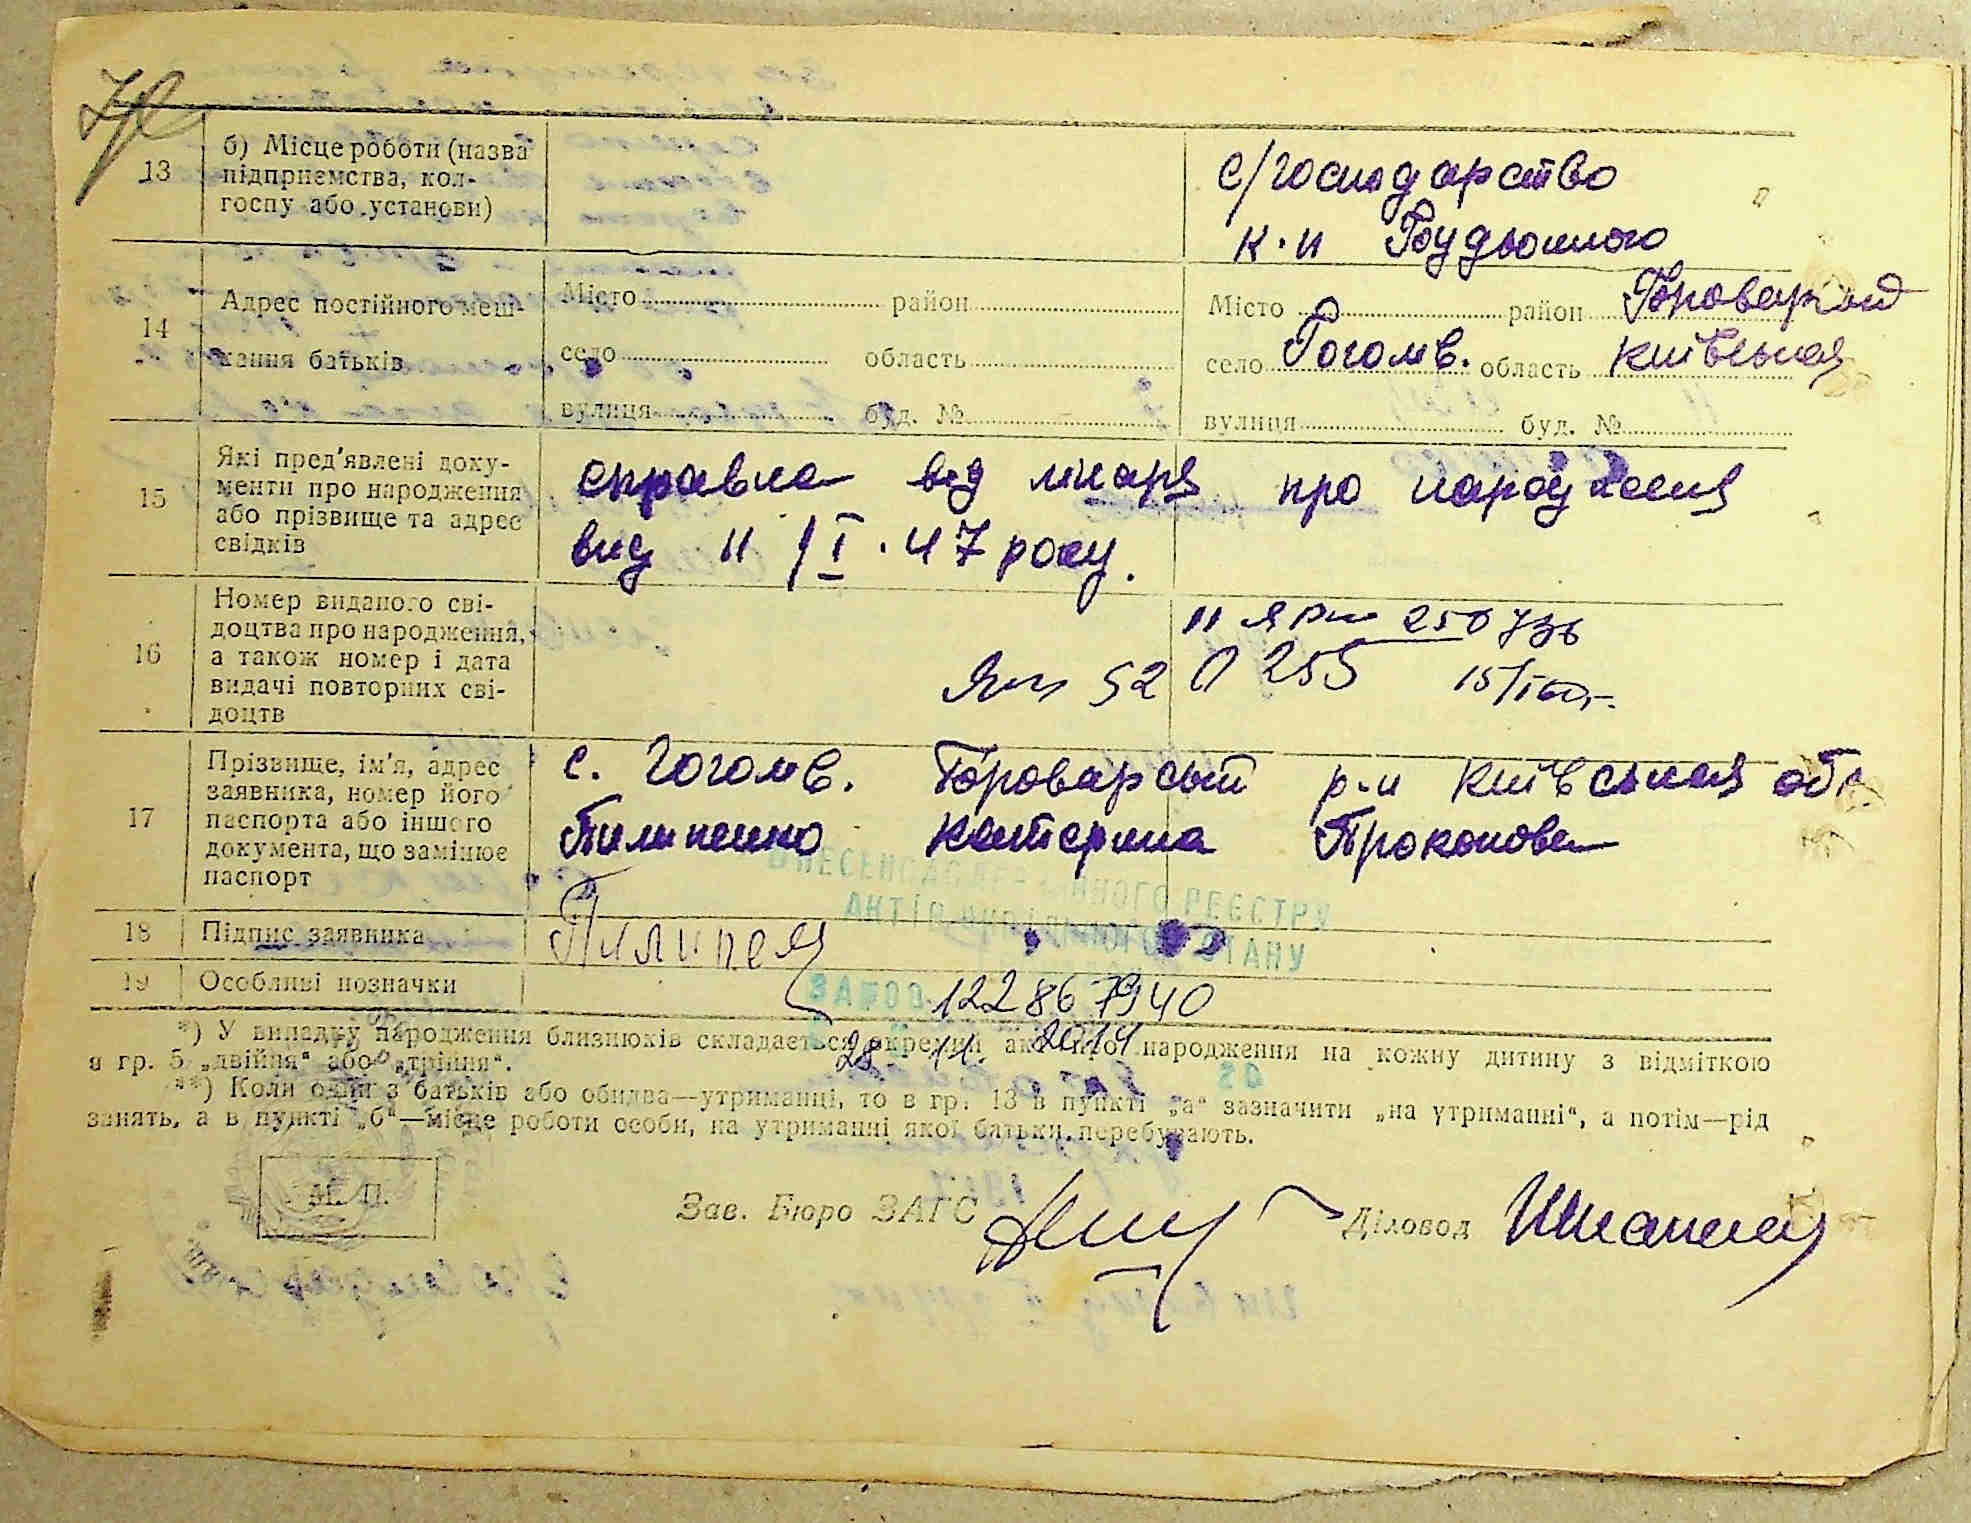 13
б) Місце роботи (назва
підприємства, кол-
госпу або установи)
с/господарство
к-п Будьонного
14
Адрес постійного меш-
кання батьків
Місто район
село область
вулиця буд. №
Місто район Броварський
село Гоголів. область Київська
вулиця буд. №
15
Які пред'явлені доку-
менти про народження
або прізвище та адрес
свідків
справка від лікаря про народження
від 11/I.47 року.
16
Номер виданого сві-
доцтва про народження,
а також номер і дата
видачі повторних сві-
доцтв
II 250736
52 0255 15/I
17
Прізвище, ім'я, адрес
заявника, номер його
паспорта або іншого
документа, що замінює
паспорт
с. Гоголів. Броварський р-н Київська обл
Пилипенко Катерина Прокоповна
ВНЕСЕНО ДО ДЕРЖАВНОГО РЕЄСТРУ
АКТІВ ЦИВІЛЬНОГО СТАНУ
18
Підпис заявника
Пилипен
19
Особливі позначки
ЗА № 00 122867940
28 11. 2014
*) У випадку народження близнюків складається окремий акт про народження на кожну дитину з відміткою
в гр. 5 „двійня“ або „трійня“.
**) Коли один з батьків або обидва—утриманці, то в гр. 13 в пункті „а“ зазначити „на утриманні“, а потім—рід
занять, а в пункті „б“—місце роботи особи, на утриманні якої батьки перебувають.
М. П.
Зав. Бюро ЗАГС
Діловод